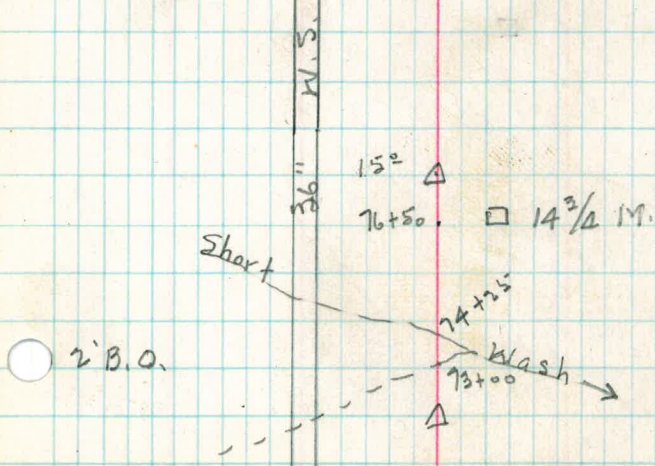 36" W.S.
15°
76+50
14 3/4 M.
Short
74+25
Wash
2' B.O.
73+00